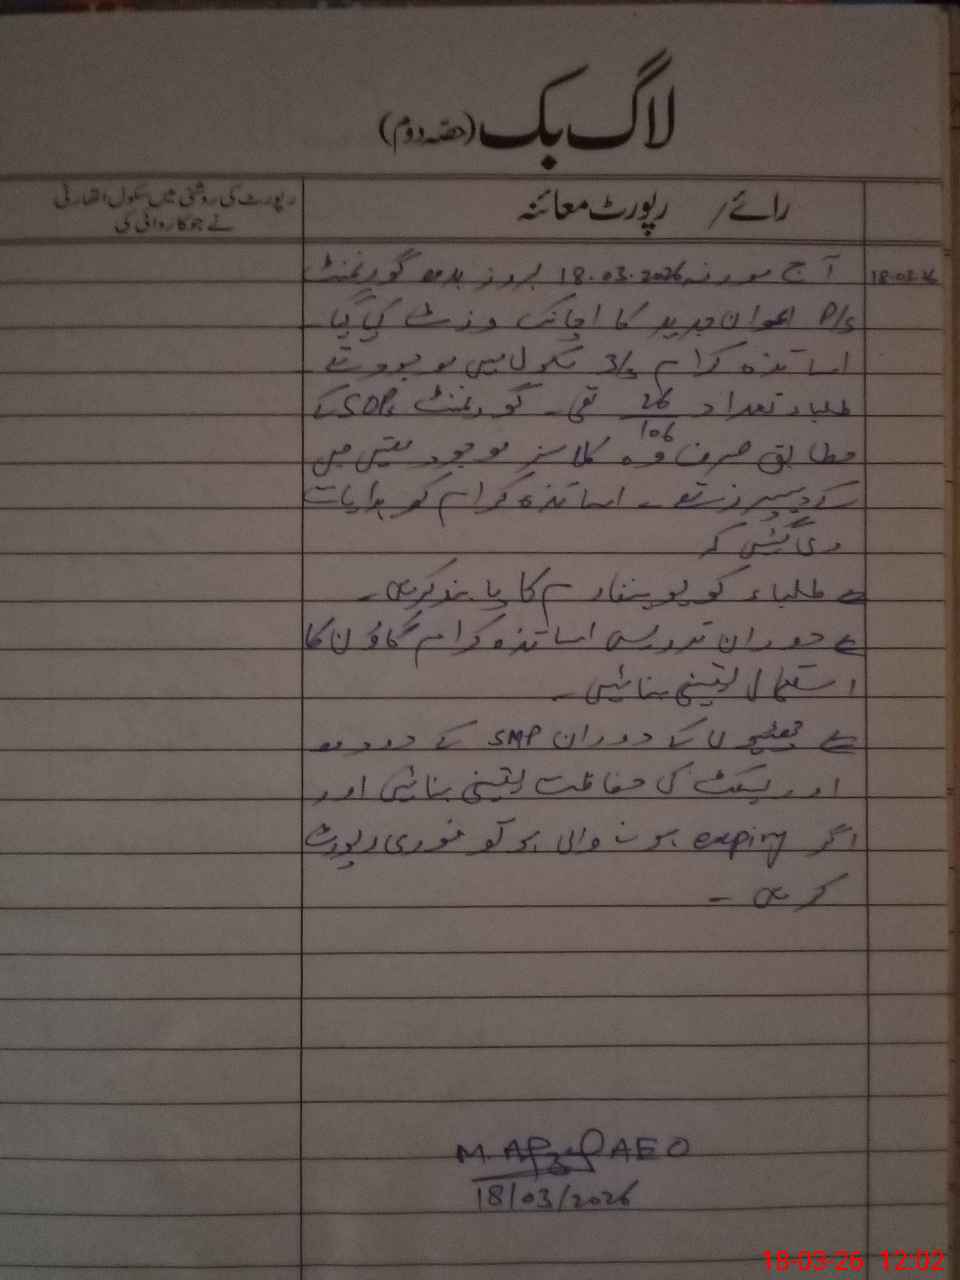 لاگ بک (حصہ دوم)
رائے / رپورٹ معائنہ
رپورٹ کی روشنی میں سکول اتھارٹی
نے جو کاروائی کی
18-03-26
آج مورخہ 18.03.2026 بروز بدھ گورنمنٹ
P/S اعوان جدید کا اچانک وزٹ کیا گیا۔
اساتذہ کرام 3/3 سکول میں موجود تھے۔
طلباء تعداد 26/106 تھی۔ گورنمنٹ SOPs کے
مطابق صرف وہ کلاسز موجود تھیں جن
کے پیپرز تھے۔ اساتذہ کرام کو ہدایات
دی گئیں کہ
طلباء کو یونیفارم کا پابند کریں۔
دوران تدریس اساتذہ کرام گاؤن کا
استعمال یقینی بنائیں۔
چھٹیوں کے دوران SMP کے دودھ
اور بسکٹ کی حفاظت یقینی بنائیں اور
اگر expiry ہونے والی ہو تو فوری رپورٹ
کریں۔
M. Afzal AEO
18/03/2026
18-03-26 12:02